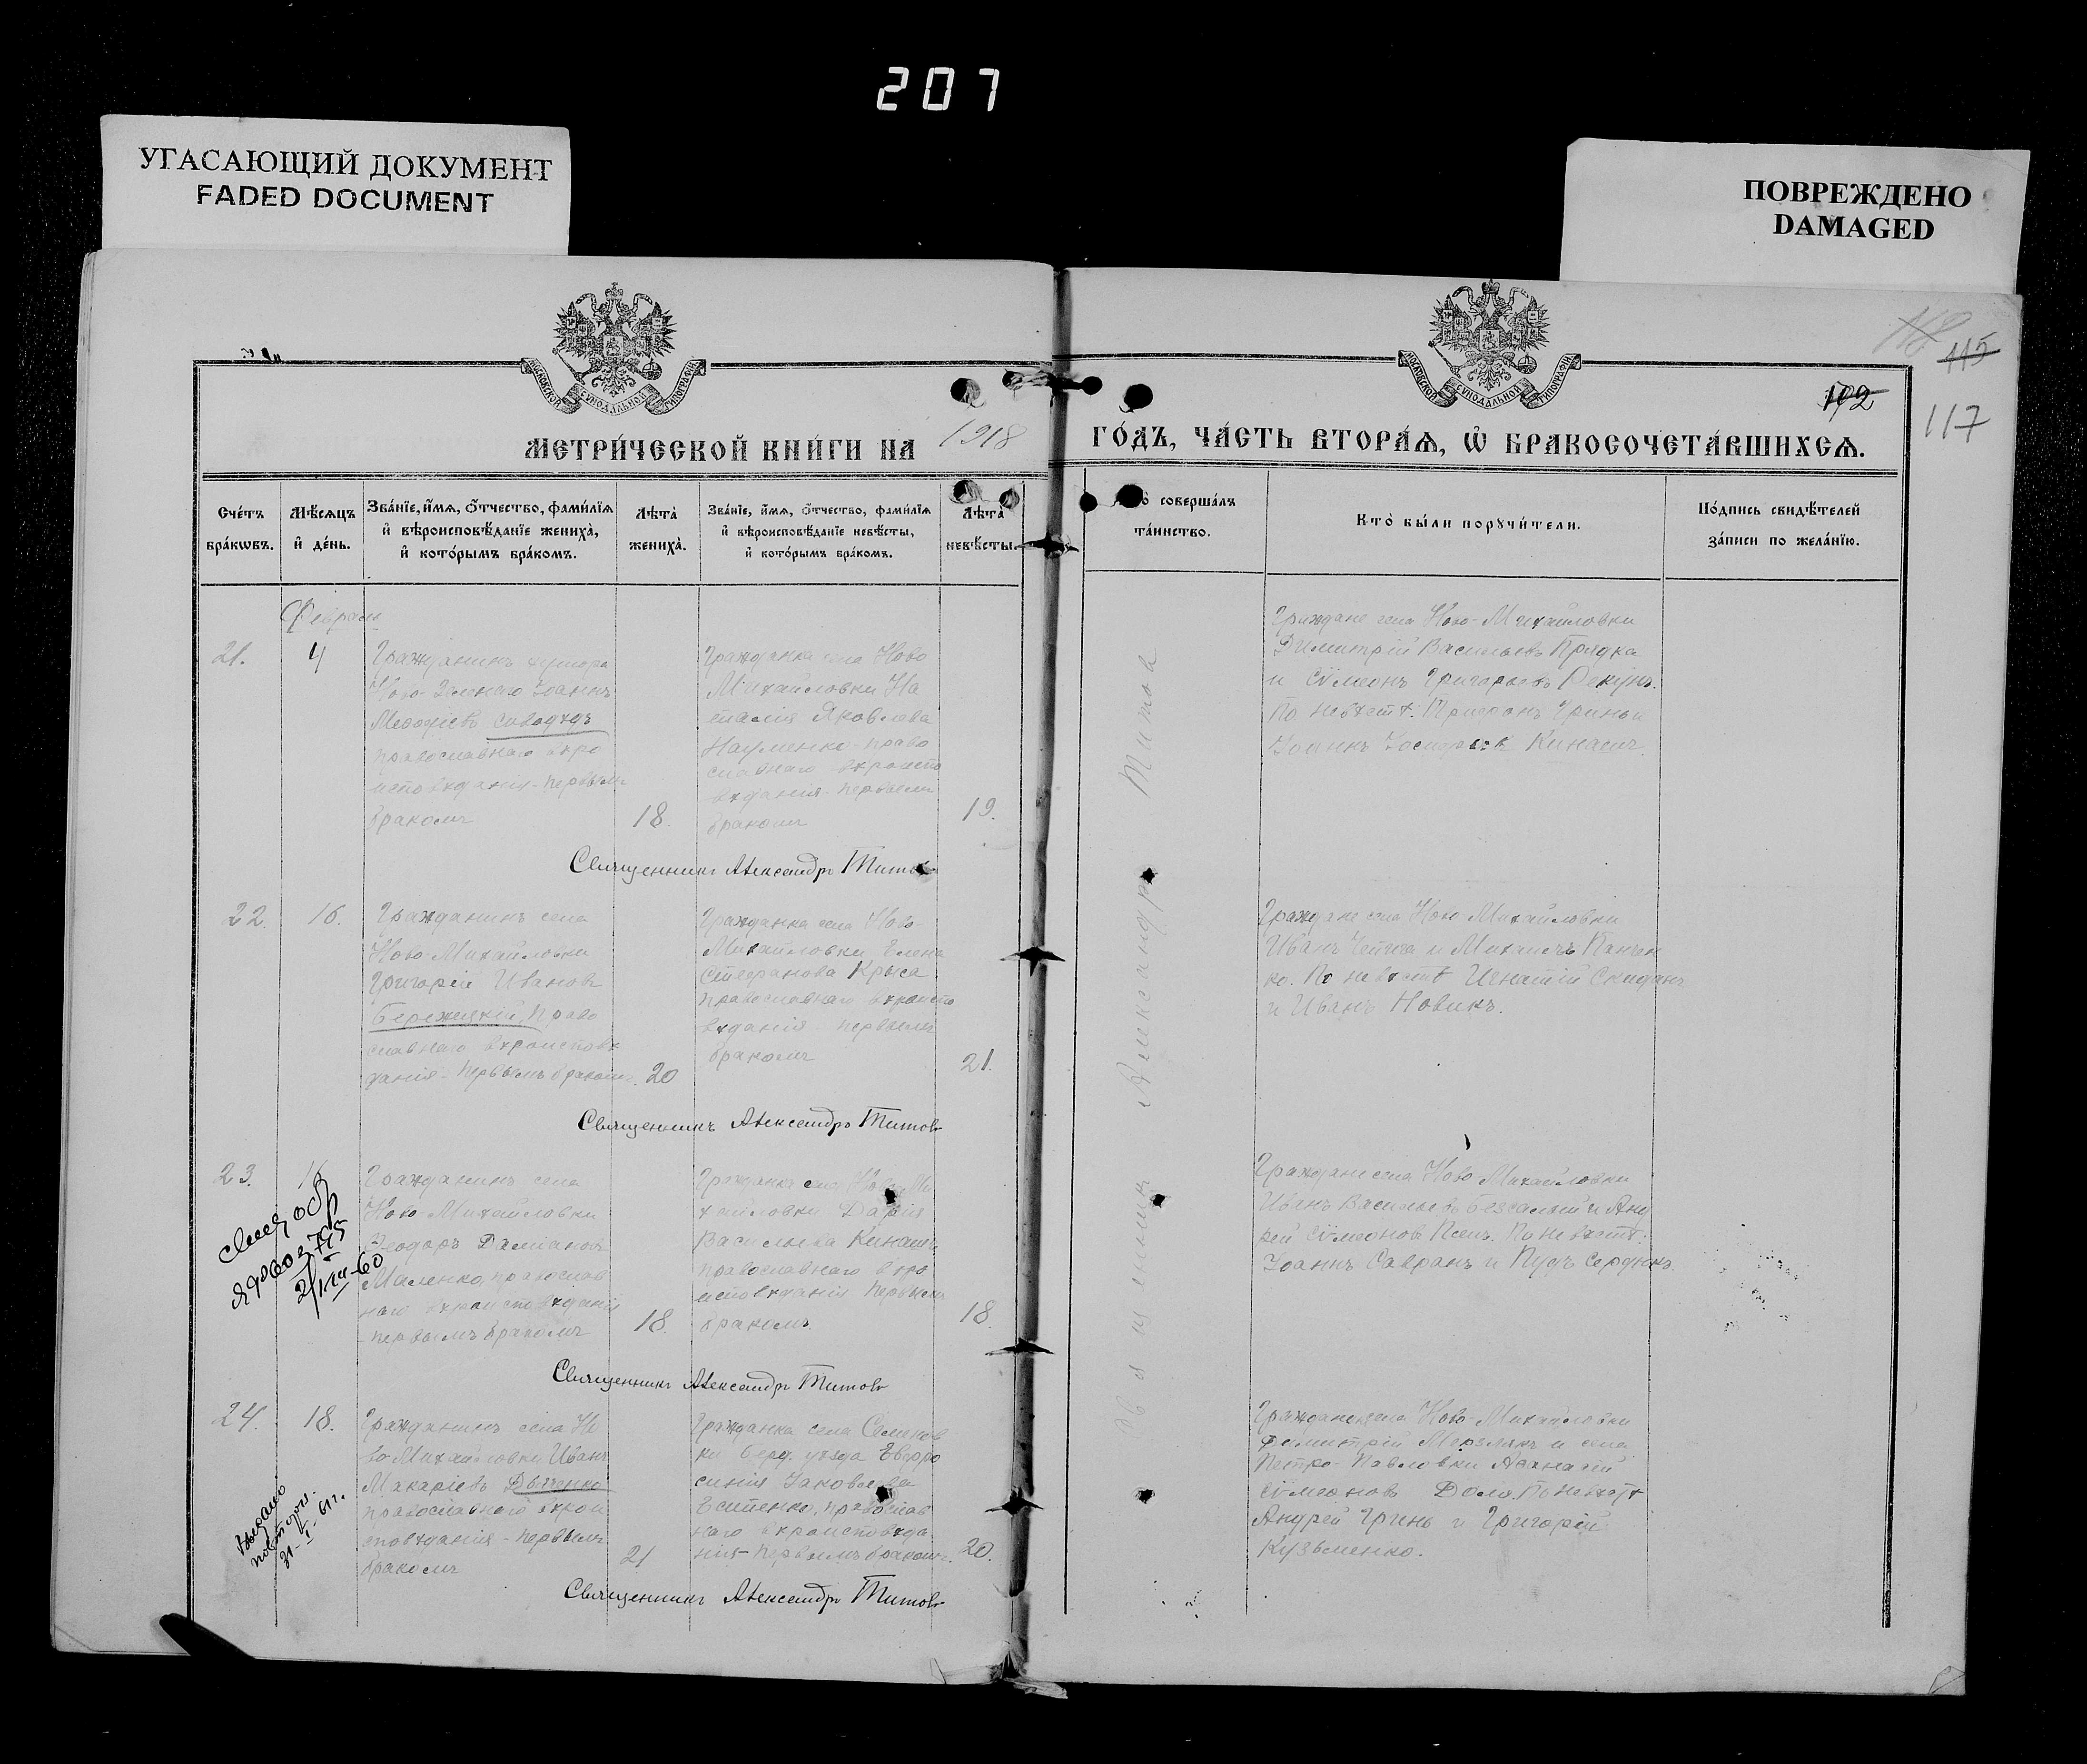 207
УГАСАЮЩИЙ ДОКУМЕНТ
FADED DOCUMENT
ПОВРЕЖДЕНО
DAMAGED
МОСКОВСКОЙ СѴНОДАЛЬНОЙ ТИПОГРАФІИ
МОСКОВСКОЙ СѴНОДАЛЬНОЙ ТИПОГРАФІИ
118
115
102
117
МЕТРИ́ЧЕСКОЙ КНИ́ГИ НА 1918 ГО́ДЪ, ЧА́СТЬ ВТОРА́Ѧ, Ѡ҆ БРАКОСОЧЕТА́ВШИХСѦ.
Сче́тъ
бра́кѡвъ.
Мѣ́сѧцъ
и҆ де́нь.
Зва́нїе, и҆́мѧ, ѻ҆́тчество, фами́лїѧ
и҆ вѣроисповѣ́данїе жениха̀,
и҆ кото́рымъ бра́комъ.
Лѣ̑та
жениха̀.
Зва́нїе, и҆́мѧ, ѻ҆́тчество, фами́лїѧ
и҆ вѣроисповѣ́данїе невѣ́сты,
и҆ кото́рымъ бра́комъ.
Лѣ̑та
невѣ́сты.
соверша́лъ
та́инство.
Кто̀ бы́ли порꙋчи́тели.
По́дпись свидѣ́телей
за́писи по жела́нїю.
21.
4
Гражданинъ хутора
Ново-Зеленаго Іоаннъ
Меѳодіевъ
православнаго вѣро
исповѣданія - первымъ
бракомъ
18.
Гражданка села Ново
Михайловки На
талія Яковлева
Науменко - право
славнаго вѣроиспо
вѣданія - первымъ
бракомъ
19.
Граждане села Ново-Михайловки
Димитрій Васильевъ Прядка
и Сѵмеонъ Григорьевъ Рекунъ.
По невѣстѣ: Трифонъ Гринь и
Іоаннъ Іосифовъ Кинашъ.
Священникъ Александръ Титовъ
22.
16.
Гражданинъ села
Ново-Михайловки
Григорій Ивановъ
Бережецкій, право
славнаго вѣроисповѣ
данія - первымъ бракомъ.
20
Гражданка села Ново
Михайловки Елена
Стефанова Крыса
православнаго вѣроиспо
вѣданія первымъ
бракомъ
21.
Граждане села Ново Михайловки
Иванъ Чепига и Михаилъ Панчен
ко. По невѣстѣ Игнатій Скиданъ
и Иванъ Новикъ.
Священникъ Александръ Титовъ
23.
Гражданинъ села
Ново-Михайловки
Ѳеодоръ Даміановъ
Маленко, православ
наго вѣроисповѣданія
первымъ бракомъ
18.
Гражданка села Ново Ми
хайловки Дарія
Васильева Кинашъ
православнаго вѣро
исповѣданія первымъ
бракомъ.
18.
Граждане села Ново Михайловки
Иванъ Васильевъ Безсалый и Анд
рей Сѵмеоновъ Песъ. По невѣстѣ:
Іоаннъ Савранъ и Пудъ Сердюкъ.
Священникъ Александръ Титовъ
24.
18.
Гражданинъ села Но
во-Михайловки Иванъ
Макаріевъ Дьяченко
православнаго вѣрои
сповѣданія - первымъ
бракомъ
21
Гражданка села Семенов
ки Берд. уѣзда Евфро
синія Іаковлева
Еситенко, православ
наго вѣроисповѣда
нія - первымъ бракомъ.
20.
Граждане села Ново-Михайловки
Димитрій Мерзлякъ и села
Петро-Павловки Аѳанасій
Сѵмеоновъ Доля. По невѣстѣ
Андрей Гринь и Григорій
Кузьменко.
выдано
повторн.
31-I-61г.
Священникъ Александръ Титовъ
Священникъ Александръ Титовъ